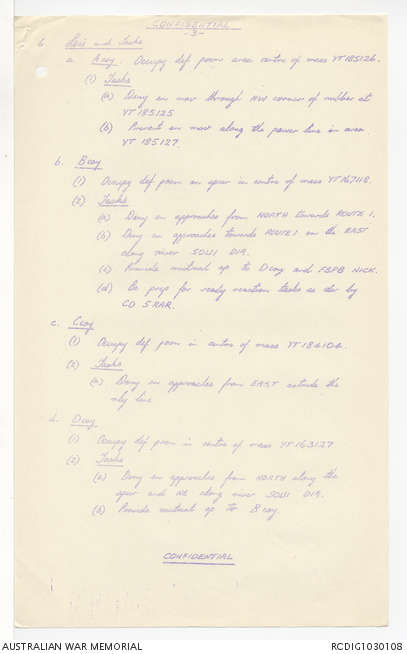 CONFIDENTIAL
-3-
6. Locs and Tasks
a. A coy. Occupy def posn area centre of mass YT 185126.
(1) Tasks
(a) Deny en mov through NW corner of rubber at
YT 185125
(b) Prevent en mov along the power line in area
YT 185127.
b. B coy
(1) Occupy def posn on spur in centre of mass YT 167118.
(2) Tasks
(a) Deny en approaches from NORTH towards ROUTE 1.
(b) Deny en approaches towards ROUTE 1 on the EAST
along river SOUI DIA.
(c) Provide mutual sp to D coy and FSPB NICK.
(d) Be prep for ready reaction tasks as dir by
CO 5 RAR.
c. C coy
(1) Occupy def posn in centre of mass YT 184104.
(2) Tasks
(a) Deny en approaches from EAST astride the
rly line
d. D coy
(1) Occupy def posn in centre of mass YT 163127
(2) Tasks
(a) Deny en approaches from NORTH along the
spur and NE along river SOUI DIA.
(b) Provide mutual sp to B coy.
CONFIDENTIAL
AUSTRALIAN WAR MEMORIAL
RCDIG1030108